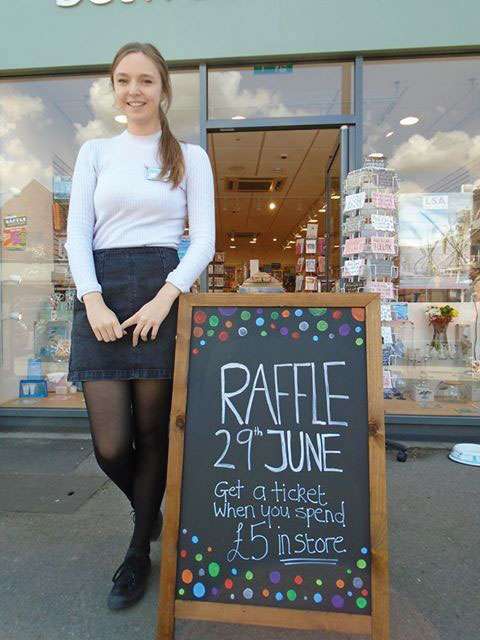 RAFFLE
29th JUNE
Get a ticket
when you spend
£5 in store
LSA